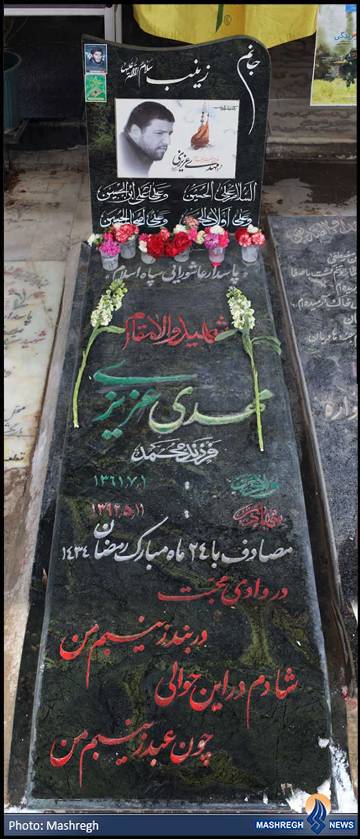 جانم
زینب سلام الله علیها
مهدی عزیزی
السلام علی الحسین
وعلی علی ابن الحسین
وعلی اولاد الحسین
وعلی اصحاب الحسین
پاسدار عاشورایی سپاه اسلام
شهید والامقام
مهدی عزیزی
فرزند محمد
۱۳۶۱،۷،۱
۱۳۹۲،۵،۱۱
مصادف با ۲۴ ماه مبارک رمضان ۱۴۳۴
در وادی محبت
در بند زینبم من
شادم در این حوالی
چون عبد زینبم من
Photo: Mashregh
MASHREGH NEWS